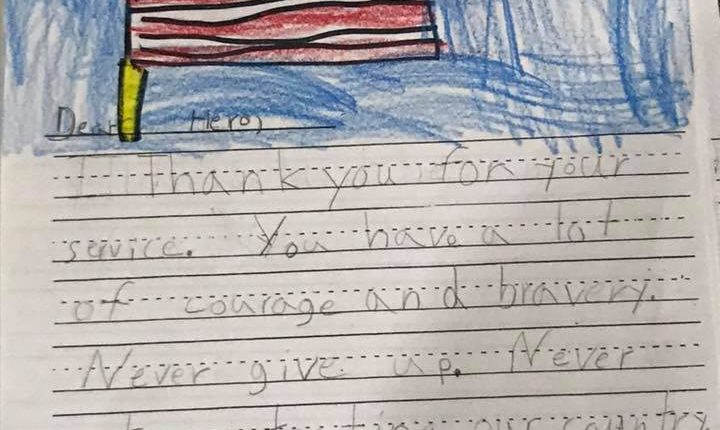 Dear Hero,
I thank you for your
service. You have a lot
of courage and bravery.
Never give up. Never
our country